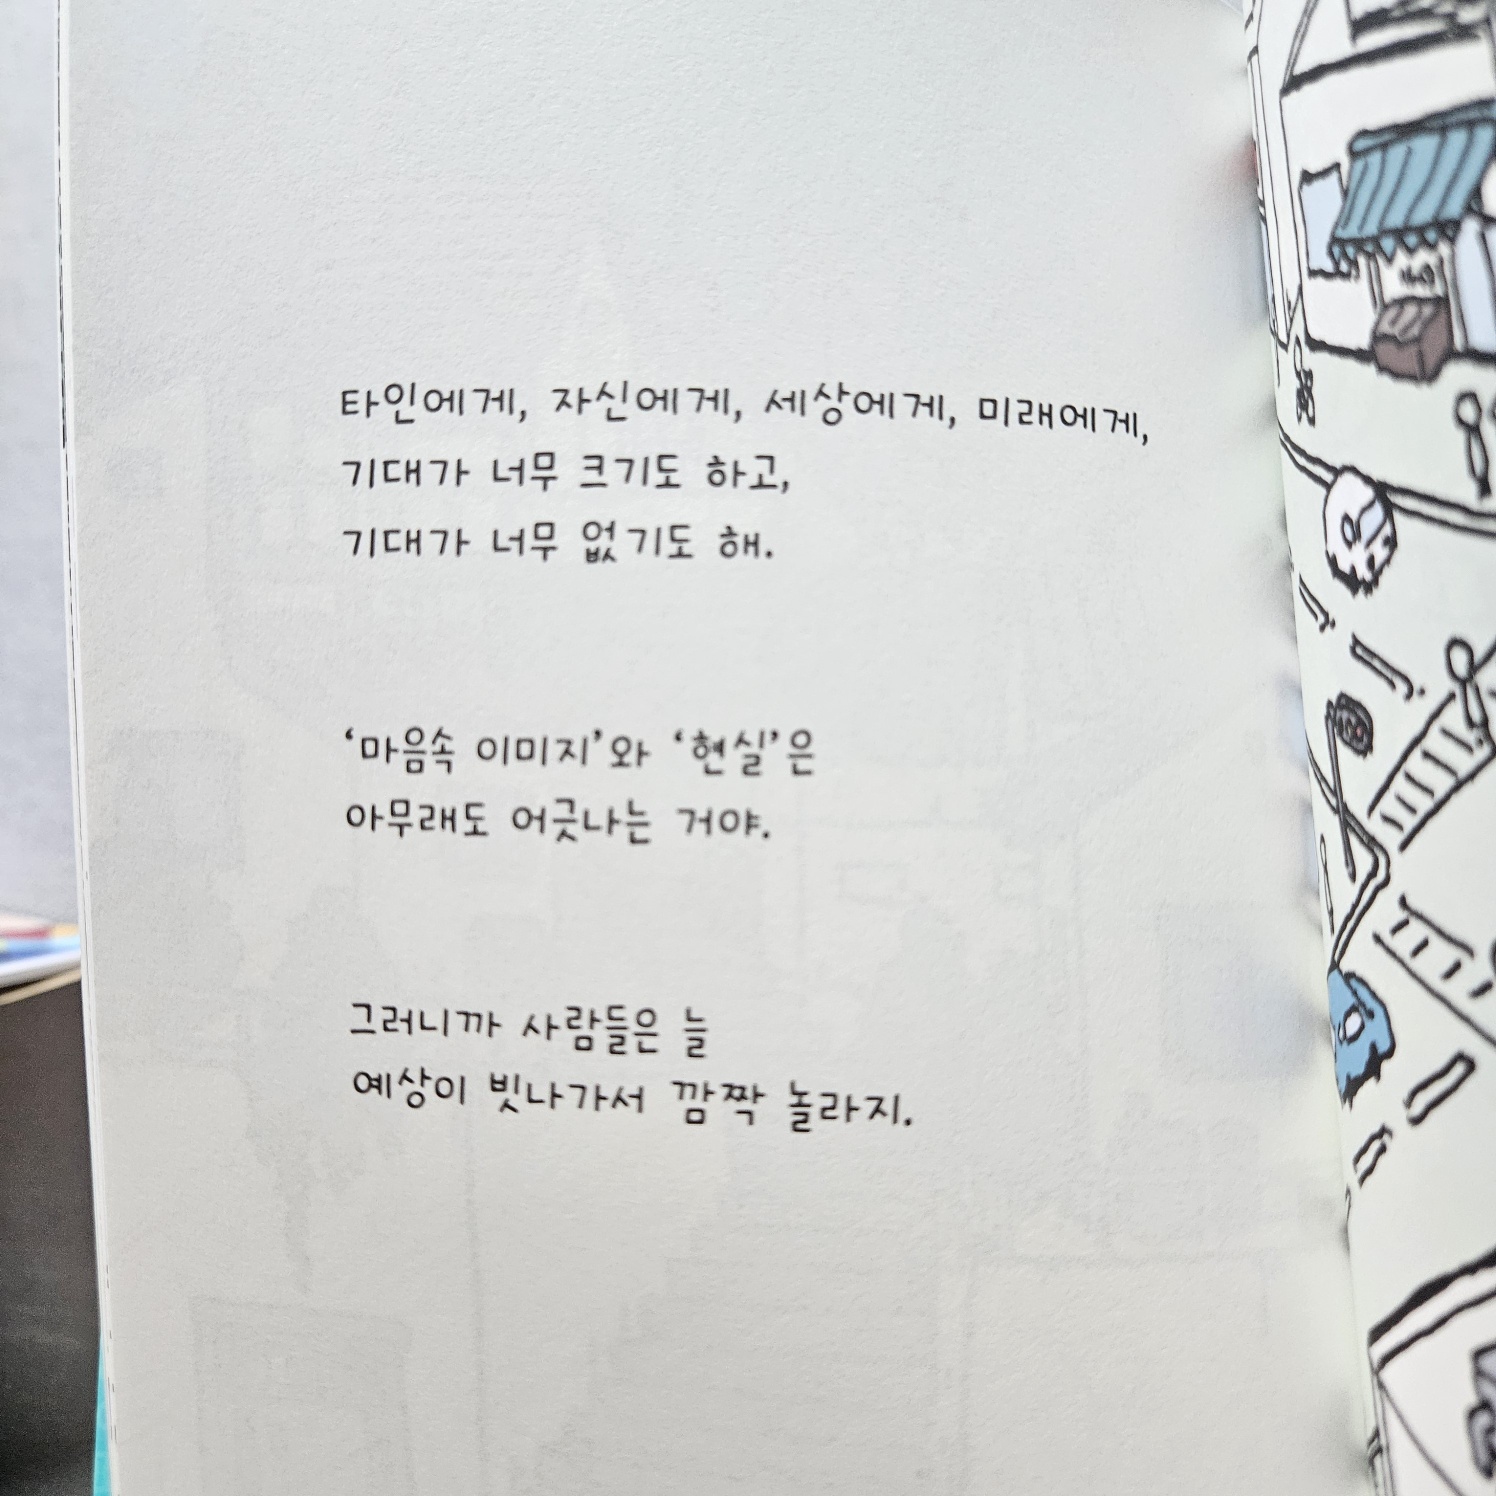 타인에게, 자신에게, 세상에게, 미래에게,
기대가 너무 크기도 하고,
기대가 너무 없기도 해.
‘마음속 이미지’와 ‘현실’은
아무래도 어긋나는 거야.
그러니까 사람들은 늘
예상이 빗나가서 깜짝 놀라지.